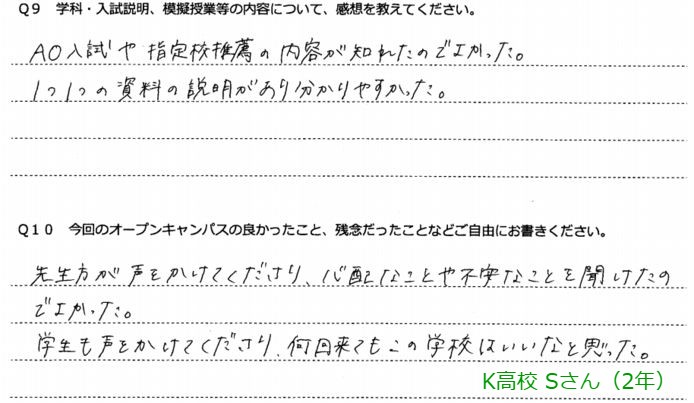 Q9 学科・入試説明、模擬授業等の内容について、感想を教えてください。
AO入試や指定校推薦の内容が知れたのでよかった。
1つ1つの資料の説明があり分かりやすかった。
Q10 今回のオープンキャンパスの良かったこと、残念だったことなどご自由にお書きください。
先生方が声をかけてくださり、心配なことや不安なことを聞けたの
でよかった。
学生も声をかけてくださり、何回来てもこの学校はいいなと思った。
K高校 Sさん（2年）